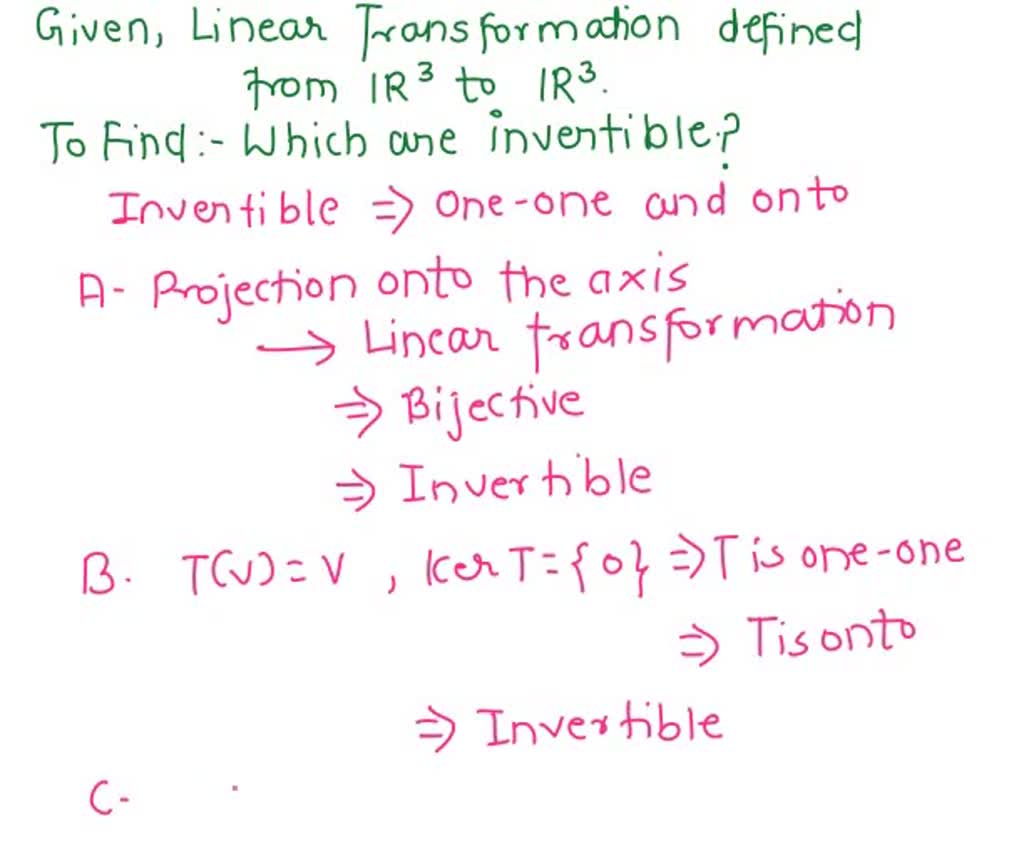 Given, Linear Transformation defined
from IR³ to IR³.
To Find:- Which are invertible?
Invertible ⇒ One-one and onto
A- Projection onto the axis
→ Linear transformation
⇒ Bijective
⇒ Invertible
B. T(v)=v , Ker T={0} ⇒ T is one-one
⇒ T is onto
⇒ Invertible
C-